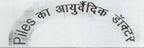 Piles का आयुर्वैदिक डॉक्टर